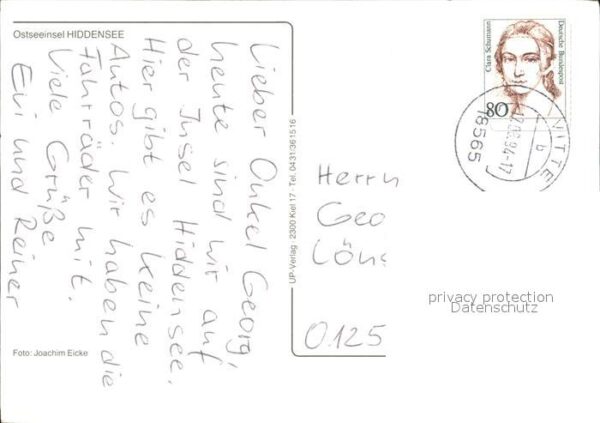 Ostseeinsel HIDDENSEE
Lieber Onkel Georg,
heute sind wir auf
der Insel Hiddensee.
Hier gibt es keine
Autos. Wir haben die
Fahrräder mit.
Viele Grüße
Evi und Reiner
Foto: Joachim Eicke
UP-Verlag · 2300 Kiel 17 · Tel. 0431/361516
Clara Schumann
Deutsche Bundespost
80
VITTE
b
.94-17
18565
Herrn
Geo
Löns
O.125
privacy protection
Datenschutz